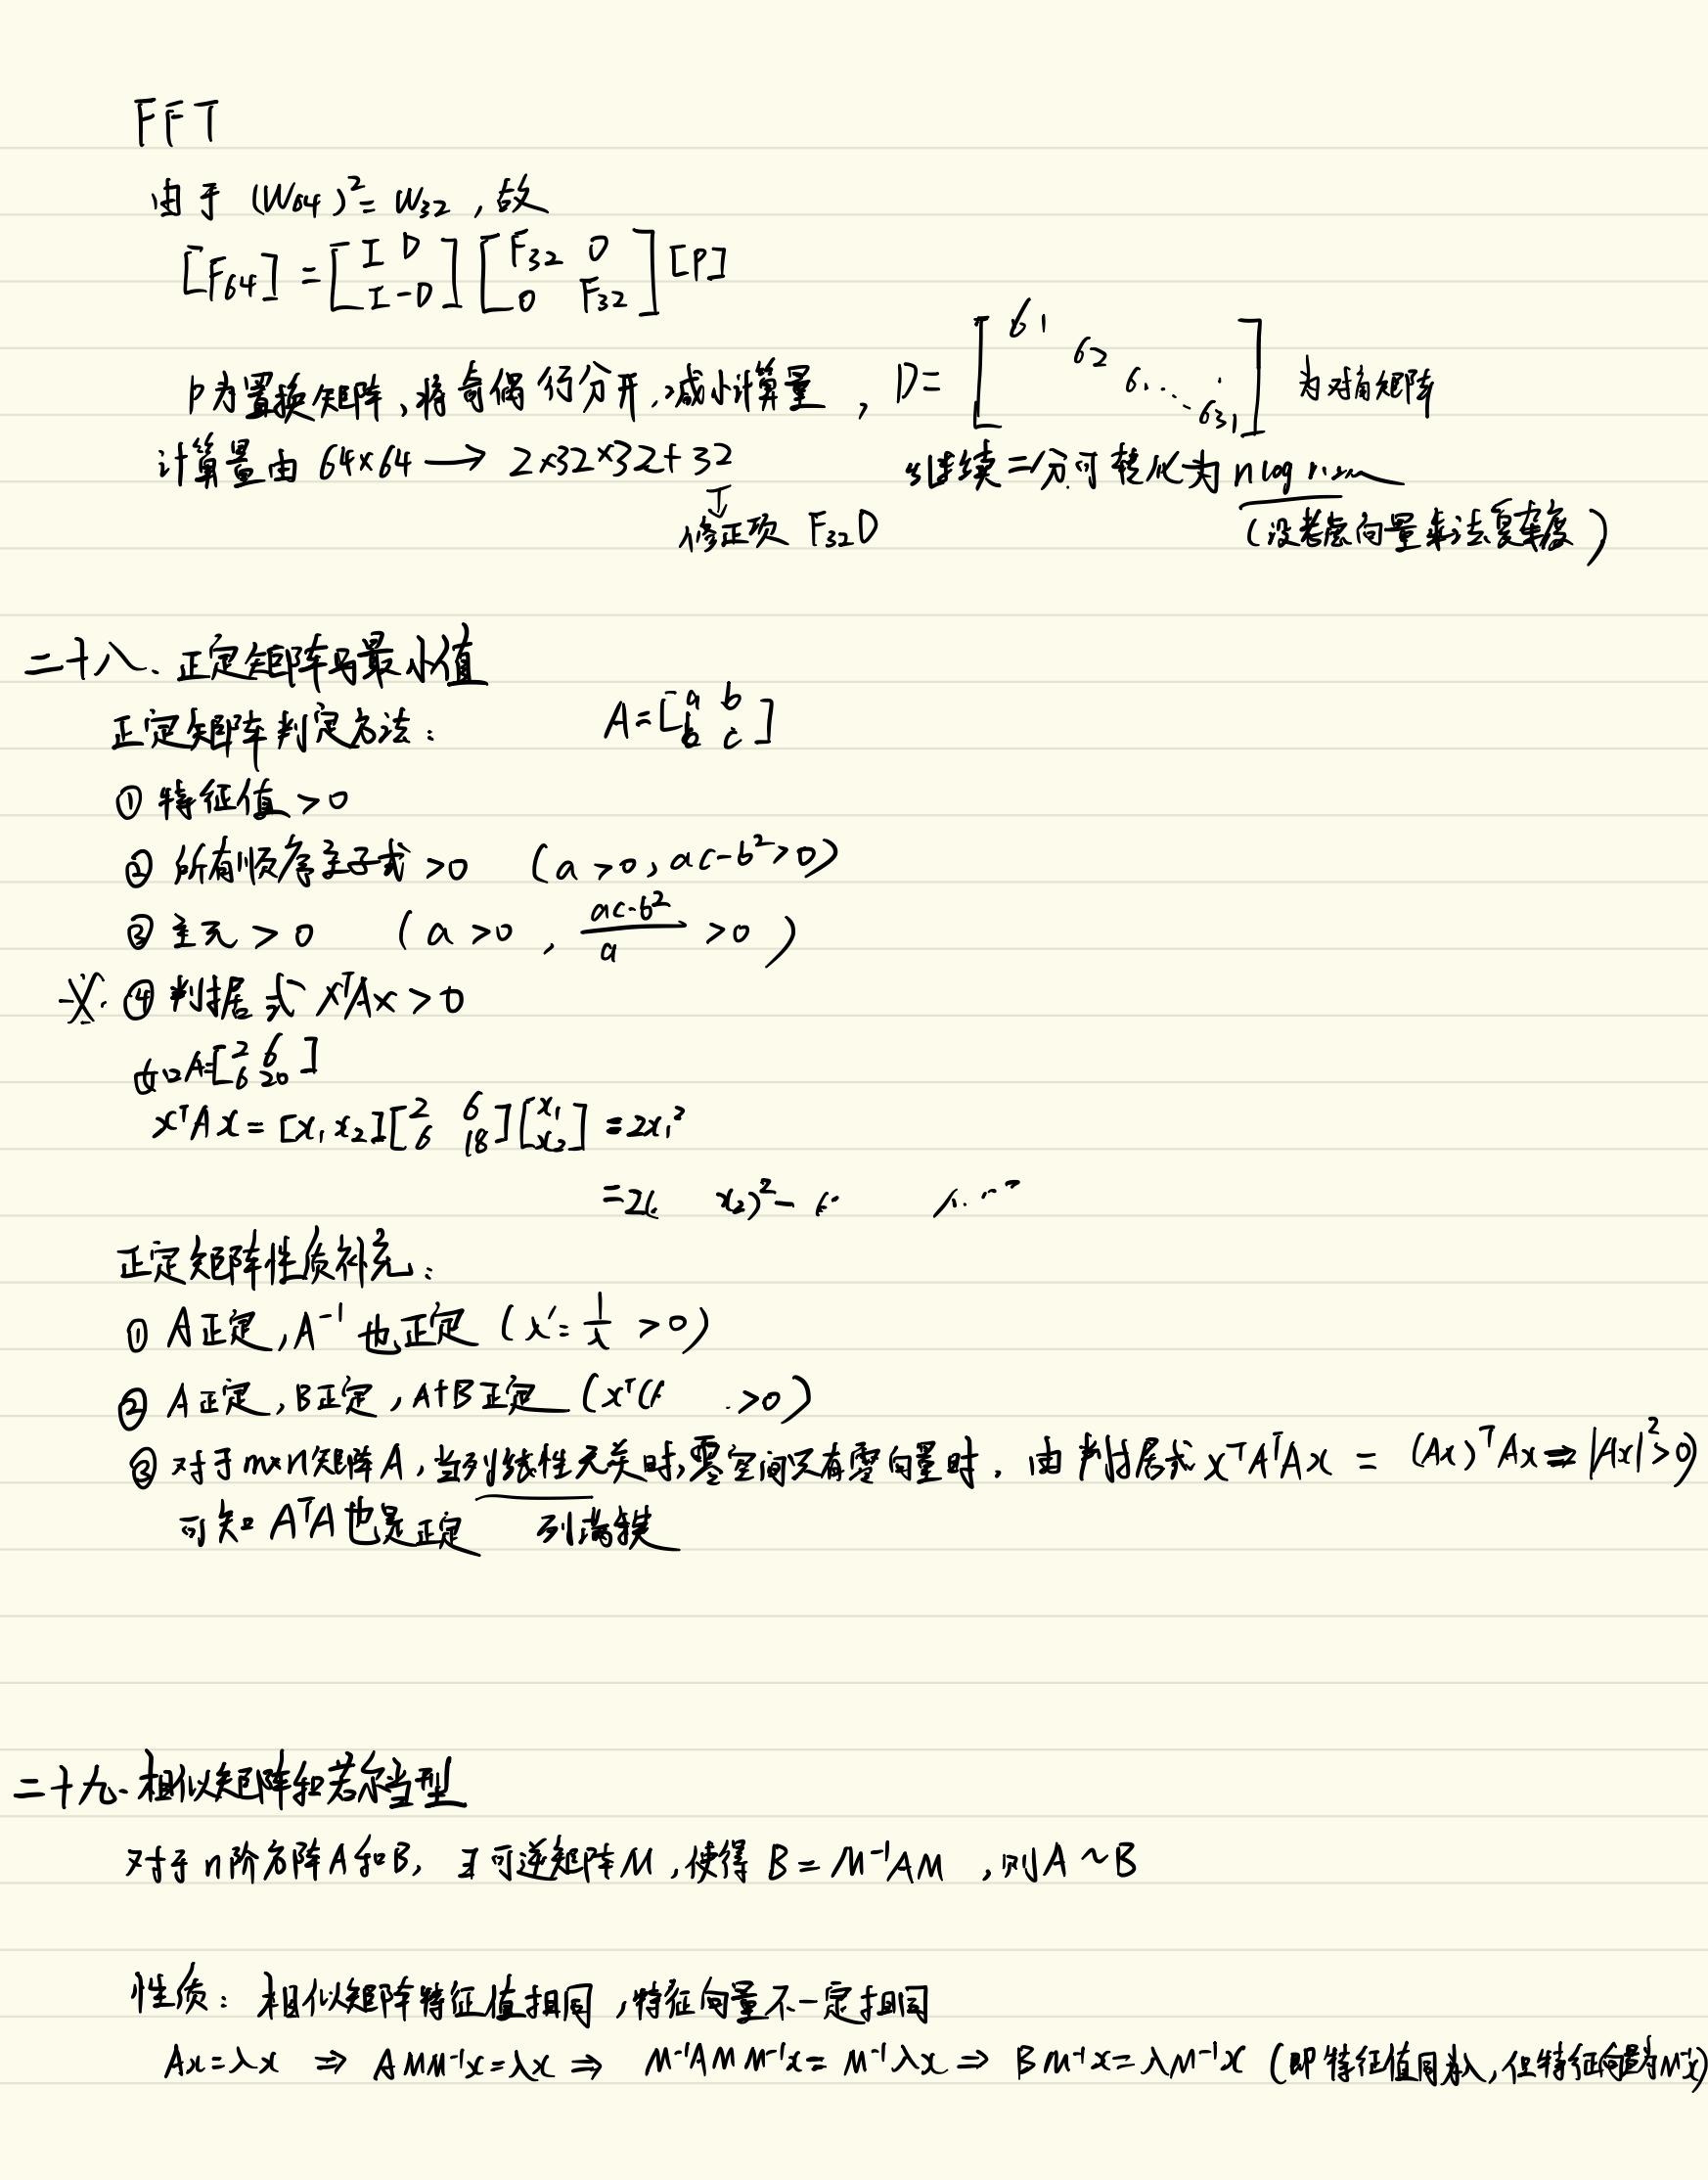 FFT
由于 (W64)² = W32 , 故
[F64] = [I D; I -D] [F32 0; 0 F32] [P]
P为置换矩阵,将奇偶行分开,减小计算量 , D = [61 62 6 ... 631] 为对角矩阵
计算量由 64×64 → 2×32×32+32 继续二分可转化为 nlog
修正项 F32D (没考虑向量乘法复杂度)
二十八、正定矩阵与最小值
正定矩阵判定方法: A=[a b; b c]
① 特征值 >0
② 所有顺序主子式 >0 (a >0, ac-b²>0)
③ 主元 > 0 (a >0 , (ac-b²)/a >0 )
※ ④ 判据式 xᵀAx > 0
如A=[2 6; 6 20]
xᵀAx = [x₁ x₂][2 6; 6 18][x₁; x₂] = 2x₁²
=2( x₂)² -
正定矩阵性质补充:
① A正定, A⁻¹ 也正定 (λ' = 1/λ >0)
② A正定, B正定, A+B正定 (xᵀ( >0)
③ 对于m×n矩阵A,当列线性无关时,零空间只有零向量时. 由判据式 xᵀAᵀAx = (Ax)ᵀAx ⇒ |Ax|²>0)
可知 AᵀA也是正定 列满秩
二十九. 相似矩阵和若尔当型
对于n阶方阵A和B, ∃可逆矩阵M,使得 B = M⁻¹AM ,则A ~ B
性质: 相似矩阵特征值相同,特征向量不一定相同
Ax=λx ⇒ AMM⁻¹x=λx ⇒ M⁻¹AMM⁻¹x = M⁻¹λx ⇒ BM⁻¹x=λM⁻¹x (即特征值同为λ,但特征向量为M⁻¹x)